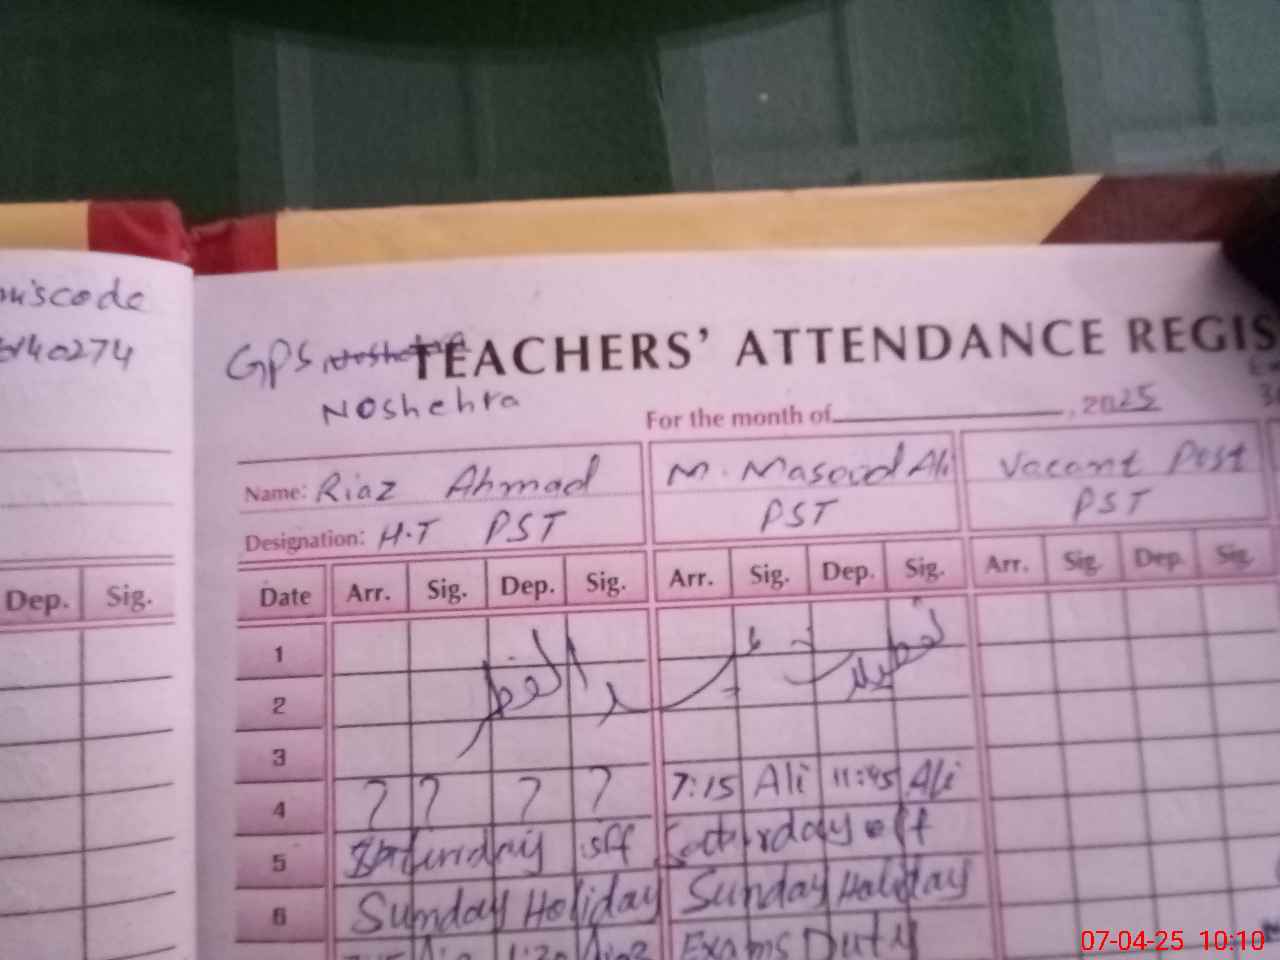 miscode
40274
GPS Noshehra TEACHERS' ATTENDANCE REGIS
Noshehra
For the month of , 2025
Name: Riaz Ahmad M. Masood Ali Vacant Post
Designation: H.T PST PST PST
Dep. Sig. Date Arr. Sig. Dep. Sig. Arr. Sig. Dep. Sig. Arr. Sig. Dep. Sig.
1
تعطیلات عید الفطر
2
3
4 ? ? ? ? 7:15 Ali 11:45 Ali
5 Saturday off Saturday off
6 Sunday Holiday Sunday Holiday
1:30 Riaz Exams Duty
07-04-25 10:10